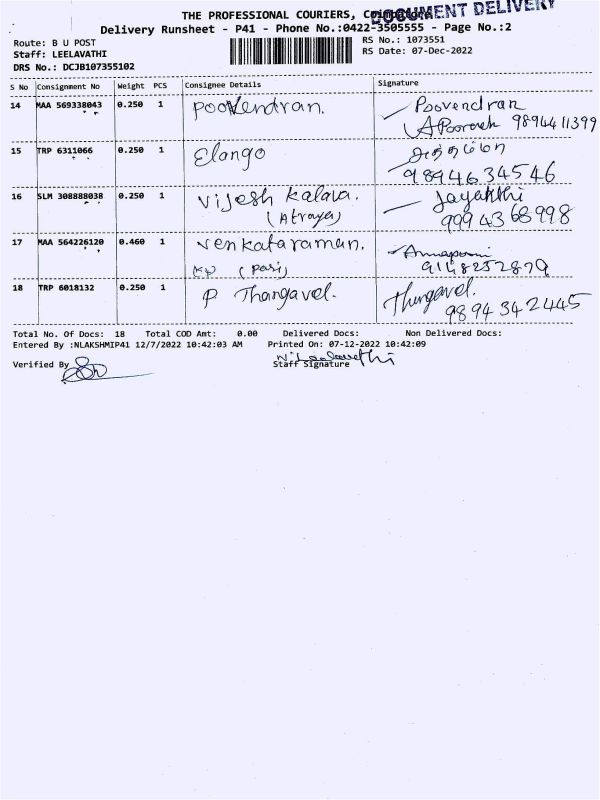 THE PROFESSIONAL COURIERS, Coimbatore
DOCUMENT DELIVERY
Delivery Runsheet - P41 - Phone No.:0422-3505555 - Page No.:2
Route: B U POST RS No.: 1073551
Staff: LEELAVATHI RS Date: 07-Dec-2022
DRS No.: DCJB107355102
S No Consignment No Weight PCS Consignee Details Signature
14 MAA 569338043 0.250 1 Poovendran. Poovendran
9894411399
15 TRP 6311066 0.250 1 Elango
9894634546
16 SLM 308888038 0.250 1 Vijesh Kalava.
(Atraya) 9994368998
17 MAA 564226120 0.460 1 Venkataraman.
(Pasi) 9148252879
18 TRP 6018132 0.250 1 P Thangavel. Thangavel.
9894342445
Total No. Of Docs: 18 Total COD Amt: 0.00 Delivered Docs: Non Delivered Docs:
Entered By :NLAKSHMIP41 12/7/2022 10:42:03 AM Printed On: 07-12-2022 10:42:09
Verified By Staff Signature